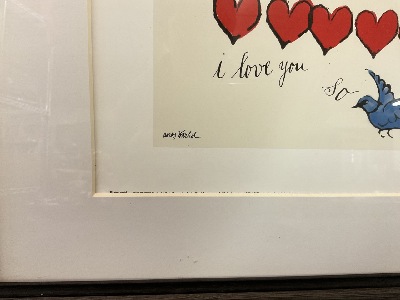 i love you
so
Andy Warhol